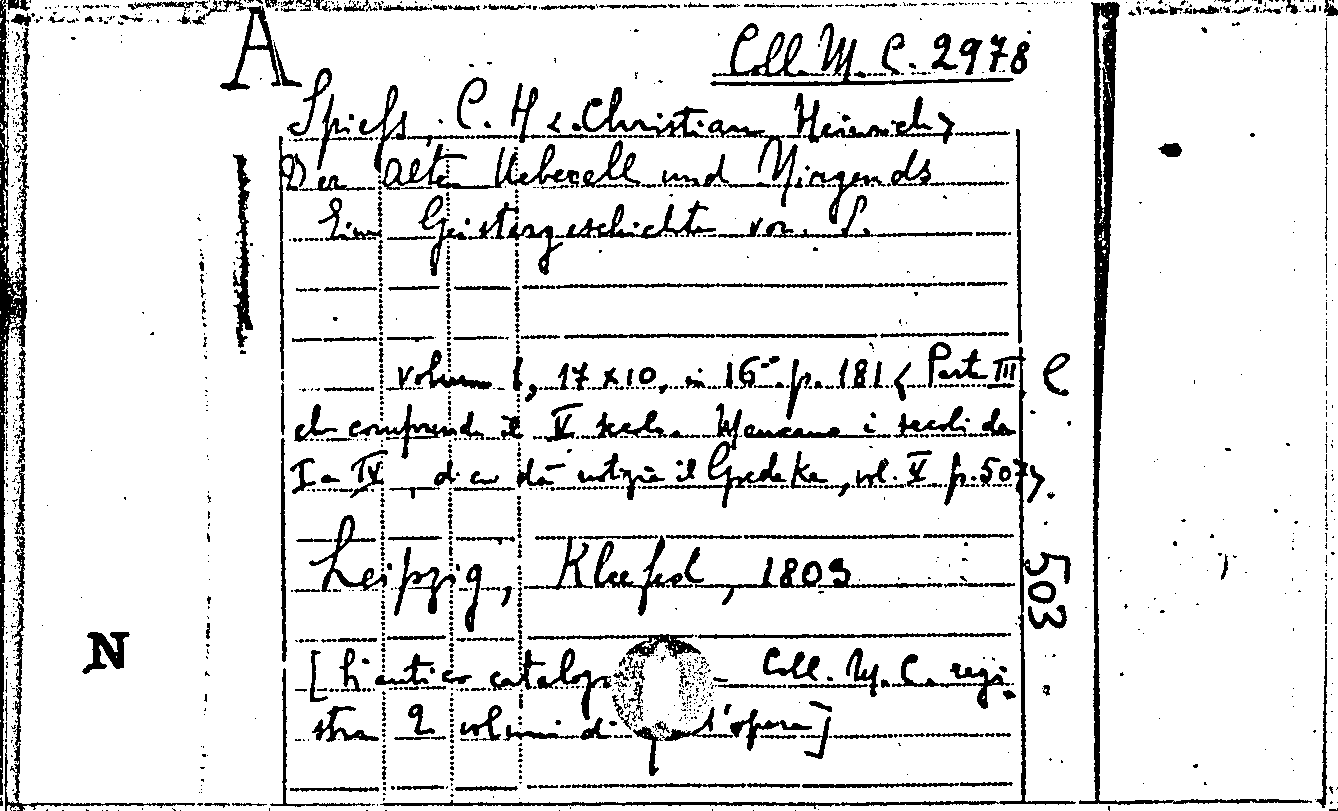 A
Coll. M. C. 2978
Spiess, C. H <.Christian Heinrich>
Der alte Ueberall und Nirgends
Eine Geistergeschichte von S.
volume 1, 17 x 10, in 16º. p. 181 < Parte III e
che comprende il V secolo. Mancano i secoli da
I a IV, di cui dà notizia il Goedeke, vol. V p. 507>.
Leipzig, Kleefeld, 1803
503
N
[L'antico catalogo Coll. M. C. regi-
stra 2 volumi di l'opera]